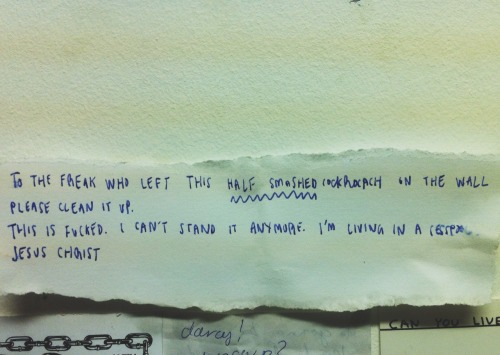 TO THE FREAK WHO LEFT THIS HALF SMASHED COCKROCACH ON THE WALL
PLEASE CLEAN IT UP.
THIS IS FUCKED. I CAN'T STAND IT ANYMORE. I'M LIVING IN A
JESUS CHRIST
darcy!
CAN YOU LIVE